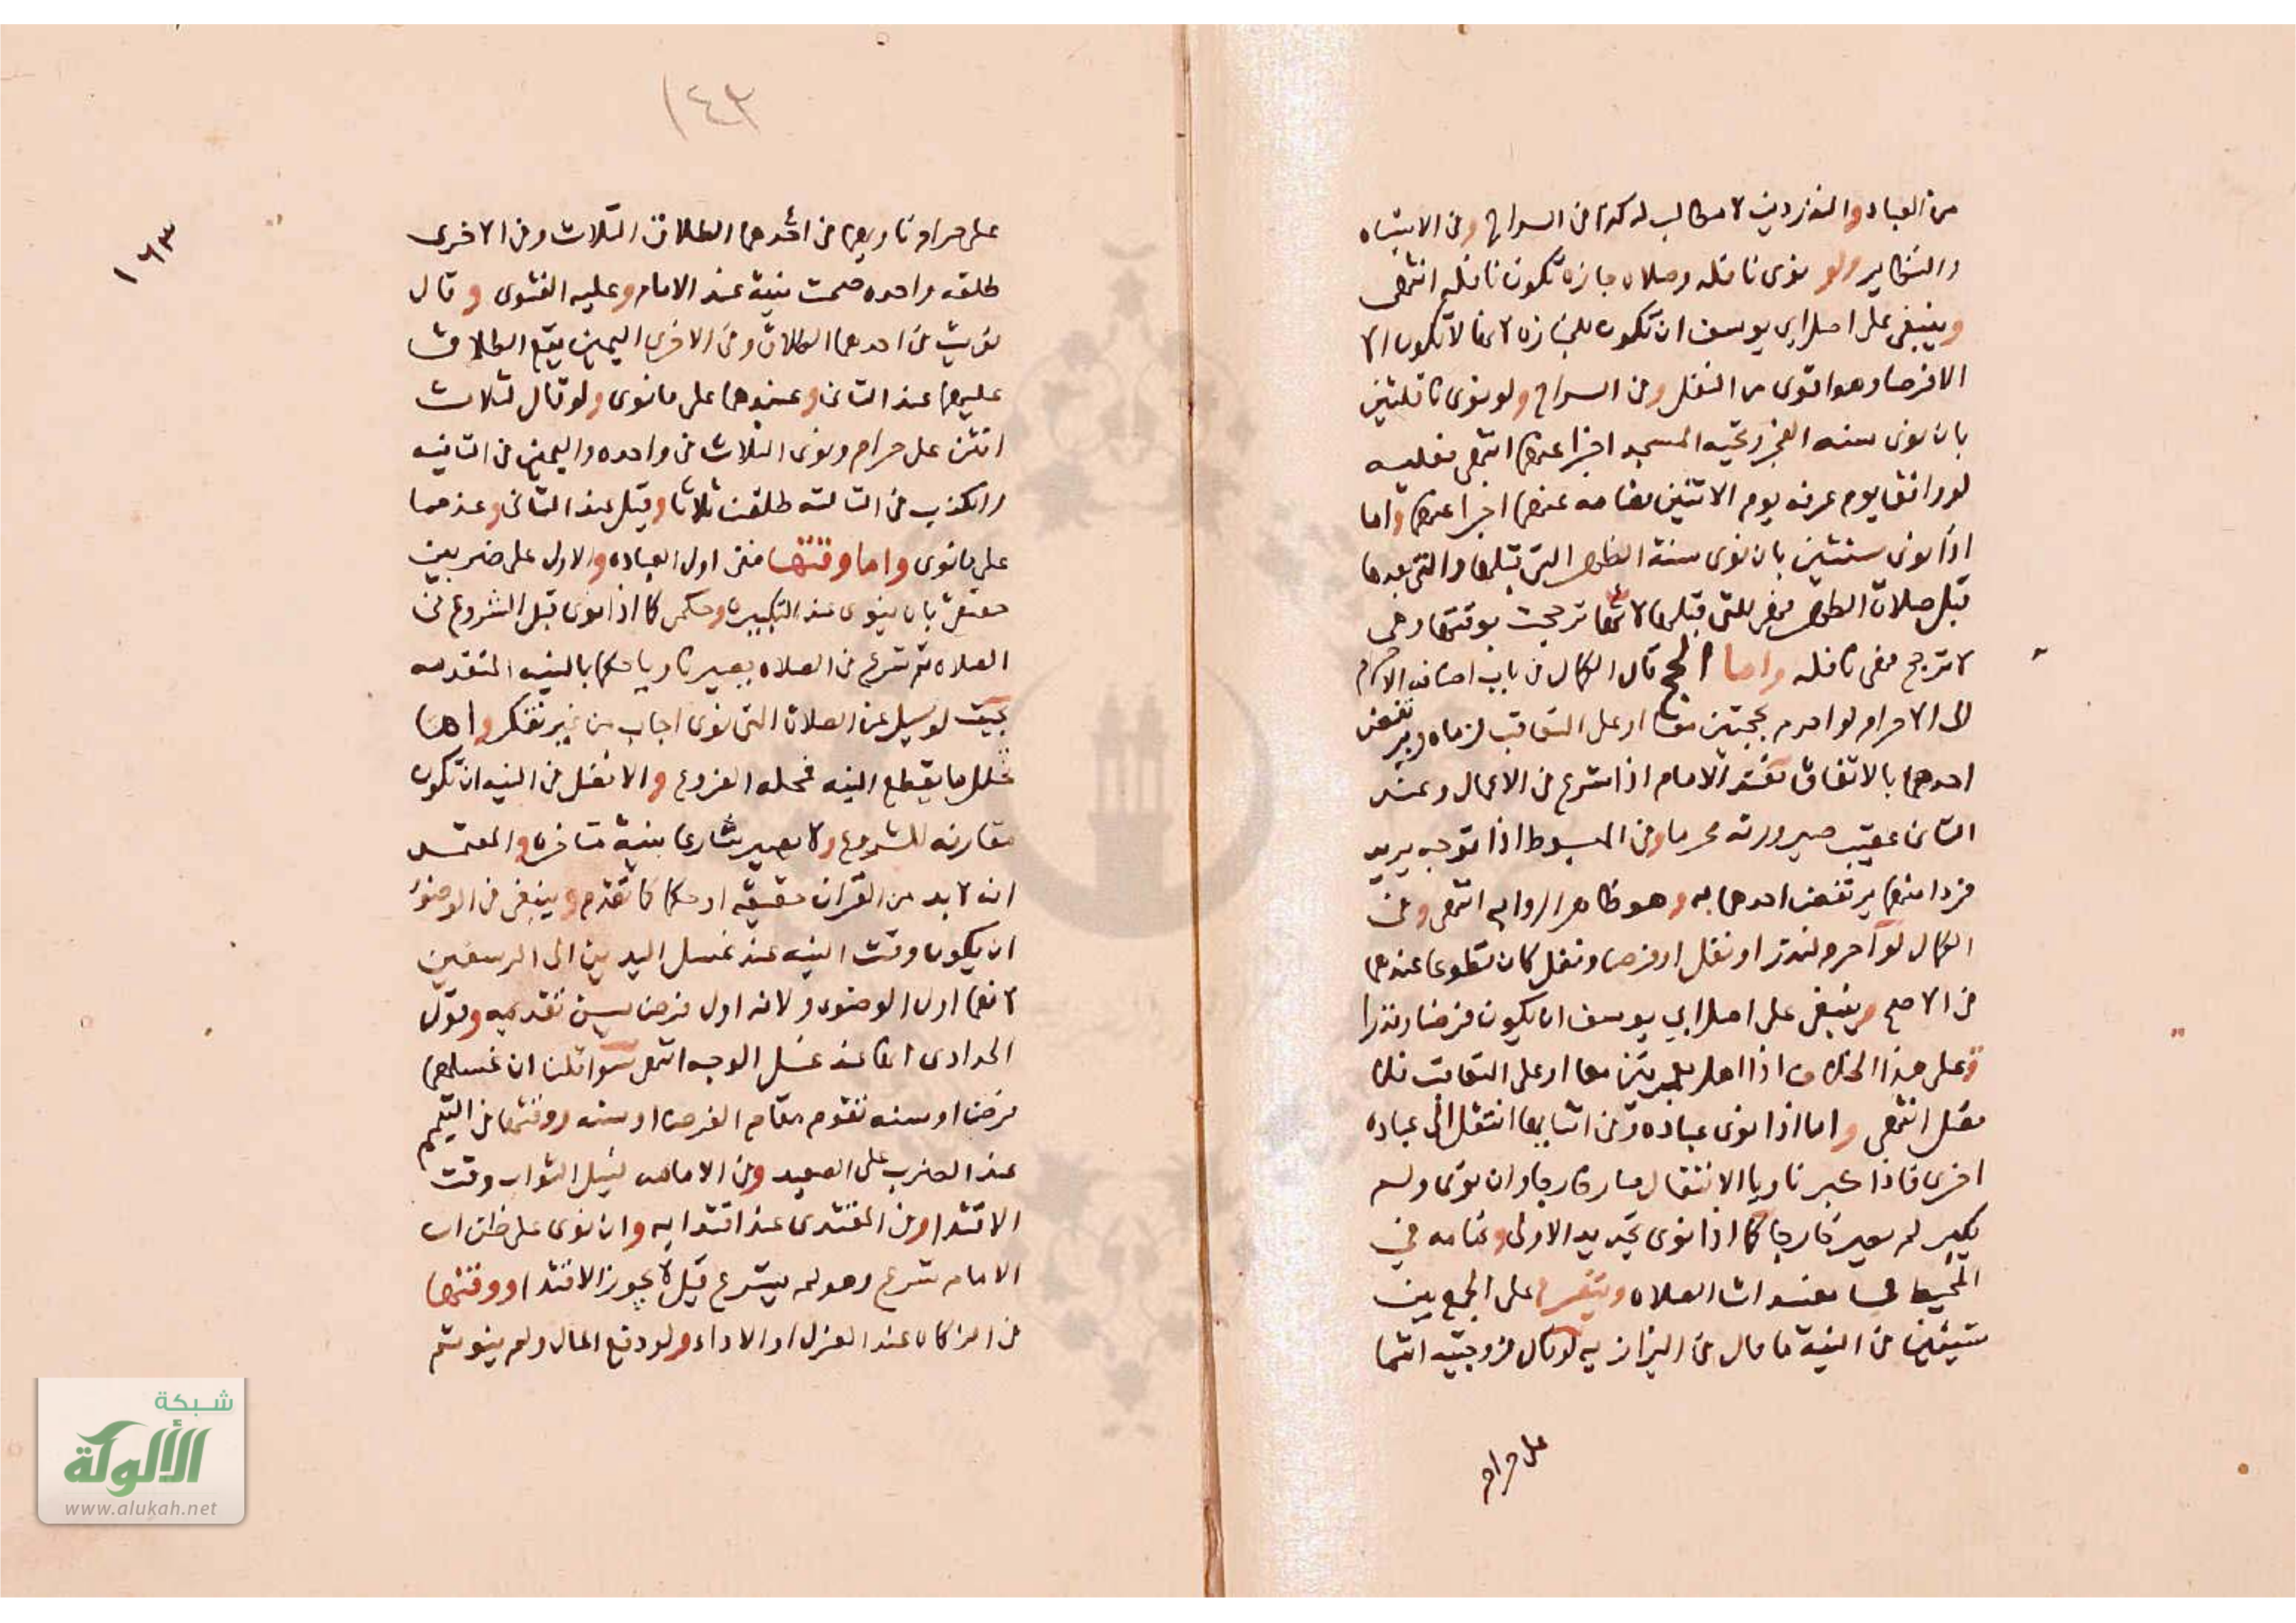 من العباد والنذر دين لا مطالب له كذا في السراج وفي الاشباه
والنظاير ولو نوى نافله وصلاة جنازه تكون نافله انتهى
وينبغي على اصل ابي يوسف ان تكون للجنازه لانها لا تكون الا
الا فرضا وهو اقوى من النفل وفي السراج ولو نوى نافلتين
بان نوى سنه الفجر وتحيه المسجد اجزا عنهما انتهى فعليه
لو وافق يوم عرفه يوم الاثنين فصامه عنهما اجزا عنهما واما
اذا نوى سنتين بان نوى سنة الظهر التي قبلها والتي بعدها
قبل صلاة الظهر فهي للتي قبلها لانها ترجحت بوقتها وهي
لا ترجح فهي نافله واما الحج قال الكمال في باب اضافه الاحرام
الى الاحرام لو احرم بحجتين معا او على التعاقب لزماه ويرتفض
احدهما بالاتفاق لكن عند الامام اذا شرع في الاعمال وعند
الثاني عقيب صيرورته محرما وفي المبسوط اذا توجه يريد
فردا منهما يرتفض احدهما به وهو ظاهر الروايه انتهى وفي
الكمال لو احرم لنذر او نفل او فرضا ونفل كان تطوعا عندهما
في الاصح وينبغي على اصل ابي يوسف ان يكون فرضا ونذرا
وعلى هذا الخلاف اذا اهل بعمرتين معا او على التعاقب بلا
فصل انتهى واما اذا نوى عباده وفي اثنايها انتقل الى عباده
اخرى فاذا كبر ناويا الانتقال صار خارجا وان نوى ولم
يكبر لم يصير خارجا كما اذا نوى تجديد الاولى وتمامه في
المحيط في مفسدات الصلاه ويتفرع على الجمع بين
شيئين في النية ما قال في البزازيه لو قال لزوجتيه انتما
على حرام
١٤٣
١٦٣
على حرام ناويا في احدهما الطلاق الثلاث وفي الاخرى
طلقه واحده صحت نيته عند الامام وعليه الفتوى وقال
نويت في احدهما الطلاق وفي الاخرى اليمين يقع الطلاق
عليهما عند الثاني وعندهما على ما نوى ولو قال لثلاث
انتن على حرام ونوى الثلاث في واحده واليمين في الثانيه
والكذب في الثالثه طلقن ثلاثا وقيل عند الثاني وعندهما
على ما نوى واما وقتها ففي اول العباده والاول على ضربين
حقيقي بان ينوى عند التكبيره وحكمي كما اذا نوى قبل الشروع في
الصلاه ثم شرع في الصلاه يصير ناويا حكما بالنيه المتقدمه
بحيث لو سيل عن الصلاة التي نوى اجاب من غير تفكر واما
تخلل ما يقطع النيه فمحله الفروع والافضل في النيه ان تكون
مقارنه للشروع ولا يصير شارعا بنية متاخره والمعتمد
انه لا بد من القران حقيقه او حكما كما تقدم وينبغي في الوضوء
ان يكون وقت النيه عند غسل اليدين الى الرسغين
لانها اول الوضوء ولانه اول فرض يسن تقديمه وقول
الحدادى انها عند غسل الوجه انتهى سوا قلنا ان غسلهما
فرضا او سنه تقوم مقام الفرض او سنه ووقتها في التيمم
عند الضرب على الصعيد وفي الامامه لنيل الثواب وقت
الاقتدا وفي المقتدى عند اقتدايه وان نوى على ظن ان
الامام شرع وهو لم يشرع قيل لا يجوز الاقتدا ووقتها
في الزكاه عند العزل او الاداء ولو دفع المال ولم ينو ثم
شبكة
الألوكة
www.alukah.net